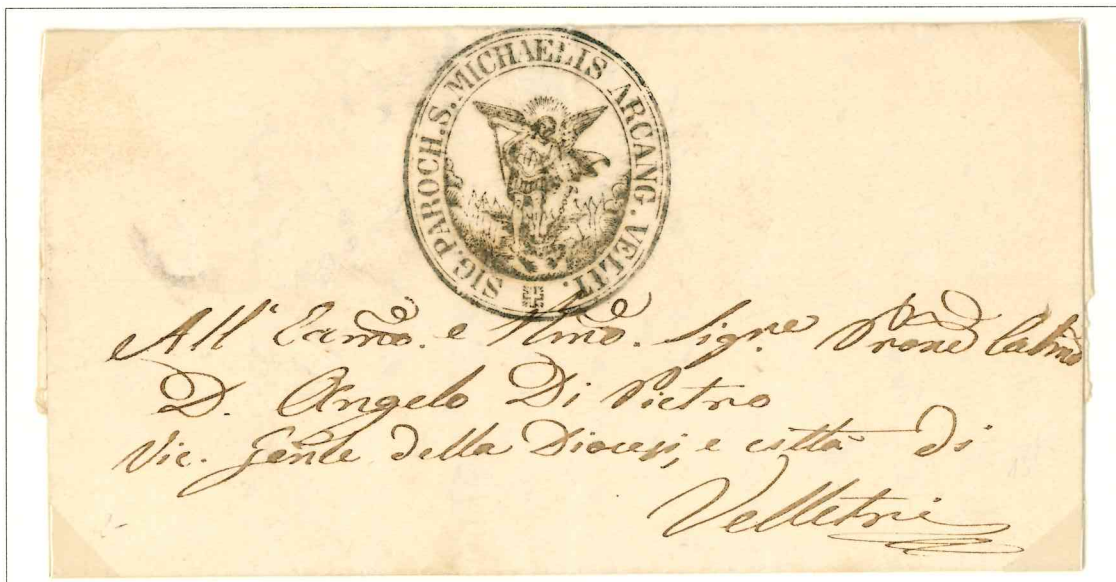 SIG. PAROCH. S. MICHAELIS ARCANG. VELIT.
All' e Rmo. Sigre. Prone
D. Angelo Di Pietro
Vic. Genle della Diocesi, e città di
Velletri